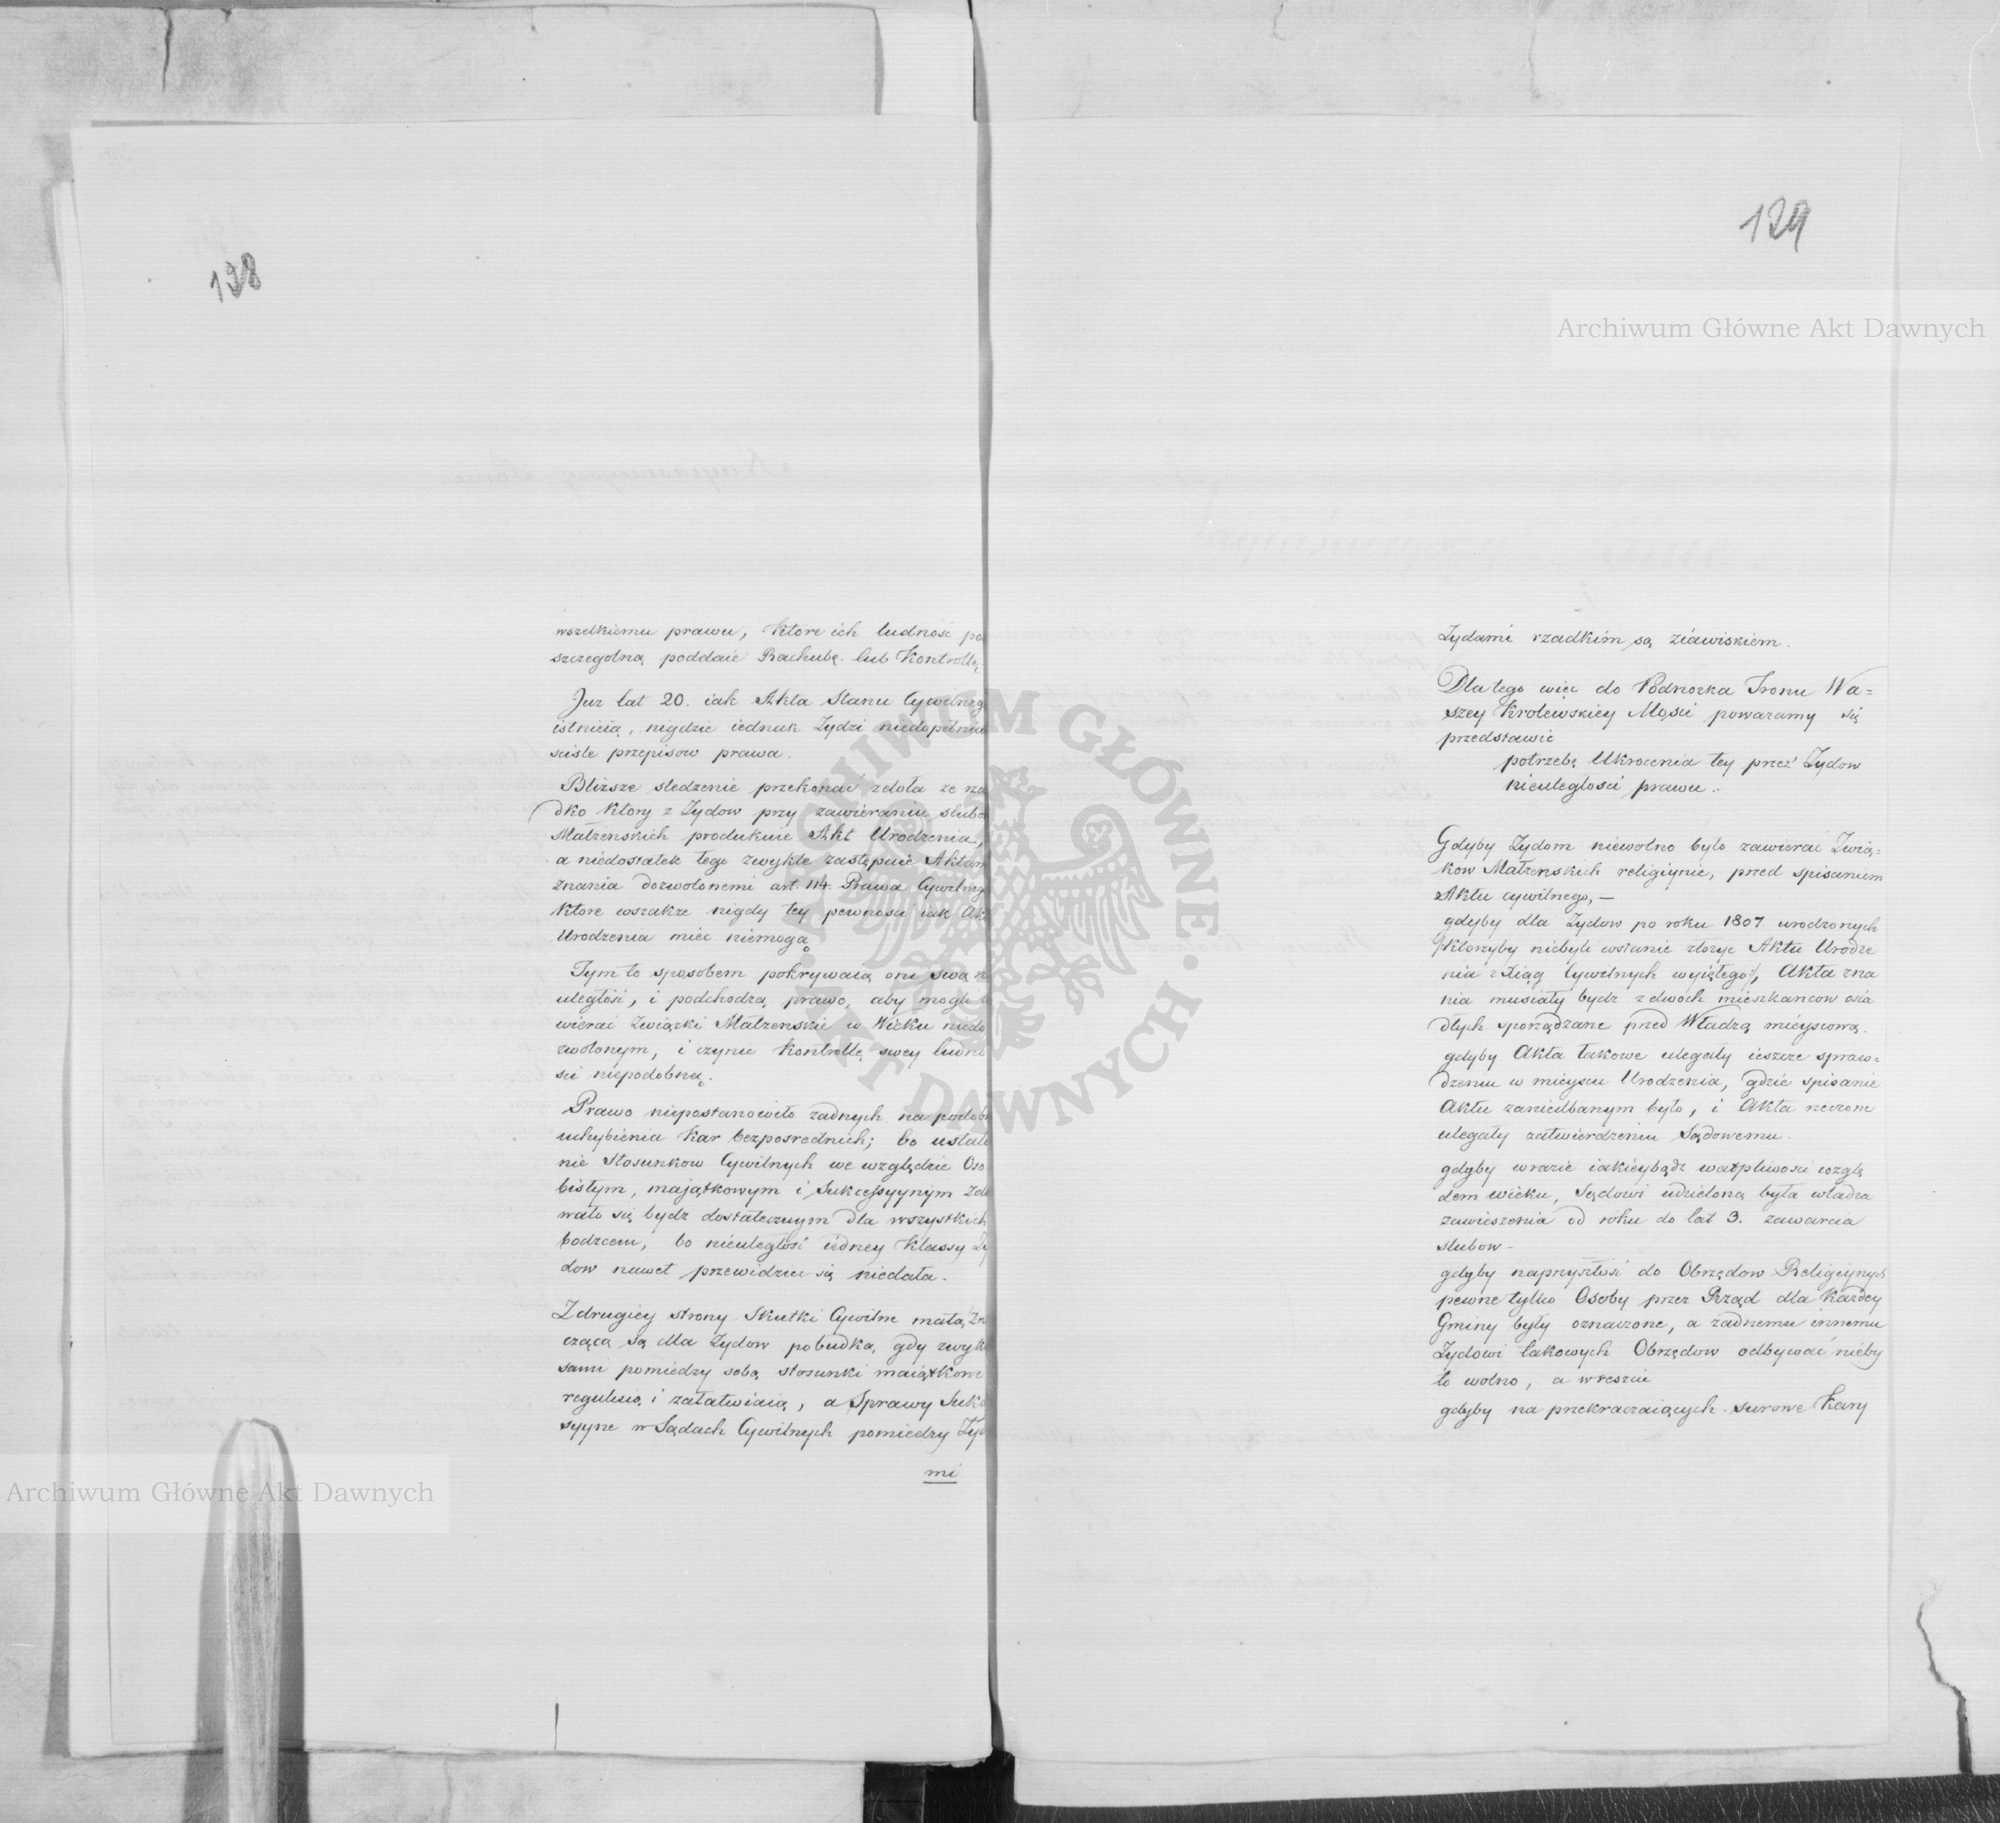 198
wszelkiemu prawu, które ich ludność po
szczegolną poddaie Rachubę lub Kontrollę
Juz lat 20. iak Akta Stanu Cywilneg
istnieią, nigdzie iednak Żydzi niedopełnia
scisle przepisow prawa.
Bliższe sledzenie przekonać zdoła ze rza
dko ktory z Żydow przy zawieraniu slubo
Małżenskich produkuie Akt Urodzenia,
a niedostatek tego zwykle zastępuie Aktam
Znania dozwolonemi art. 114. Prawa Cywilneg
które wszakze nigdy tey pewnosci iak Ak
Urodzenia mieć niemogą
Tym to sposobem pokrywaią oni swą n
uległość, i podchodzą prawo, aby mogli
wierać Związki Małzenskie w Wieku niedo
zwolonym, i czynić kontrollę swey ludno
sci niepodobną.
Prawo niepostanowiło zadnych na podob
uchybienia kar bezposrednich; bo ustale
nie Stosunkow Cywilnych we względzie Oso
bistym, maiątkowym i Sukcessyynym zda
wało się bydz dostatecznym dla wszystkich
bodzcem, bo nieuległość iedney Klassy Ży
dow nawet przewidzieć się niedała.
Z drugiey strony Skutki Cywilne mało zn
czącą są dla Żydow pobudką, gdy zwyk
sami pomiedzy sobą stosunki maiątkowe
reguluią i załatwiaią, a Sprawy Sukc
syyne w Sądach Cywilnych pomiedzy Żyd
mi
129
Żydami rzadkim są ziawiskiem.
Dla tego więc do Podnozka Tronu Wa=
szey Krolewskiey Mości powazamy się
przedstawić
potrzebę Ukrocenia tey przez Żydow
nieuległosci prawu.
Gdyby Żydom niewolno było zawierać Zwią=
kow Małzenskich religiynie, przed spisaniem
Aktu cywilnego, —
gdyby dla Żydow po roku 1807 urodzonych
/:ktorzyby niebyli wstanie złożyć Aktu Urodze
nia z Xiąg Cywilnych wyiętego:/, Akta zna
nia musiały bydz z dwoch mieszkancow osia
dłych sporządzane przed Władzą mieyscową.
gdyby Akta takowe ulegały ieszcze spraw=
dzeniu w mieyscu Urodzenia, gdzie spisanie
Aktu zaniedbanym było, i Akta rzeczone
ulegały zatwierdzeniu Sądowemu.
gdyby w razie iakieybądz wątpliwosci wzglę
dem wieku, Sądowi udzieloną była władza
zawieszenia od roku do lat 3. zawarcia
slubow –
gdyby naprzyszłość do Obrzędow Religiynych
pewne tylko Osoby przez Rząd dla kazdey
Gminy były oznaczone, a zadnemu innemu
Żydowi takowych Obrzędow odbywać nieby
ło wolno, a wreszcie
gdyby na przekraczaiących surowe kary
Archiwum Główne Akt Dawnych
Archiwum Główne Akt Dawnych
ARCHIWUM GŁÓWNE
AKT DAWNYCH